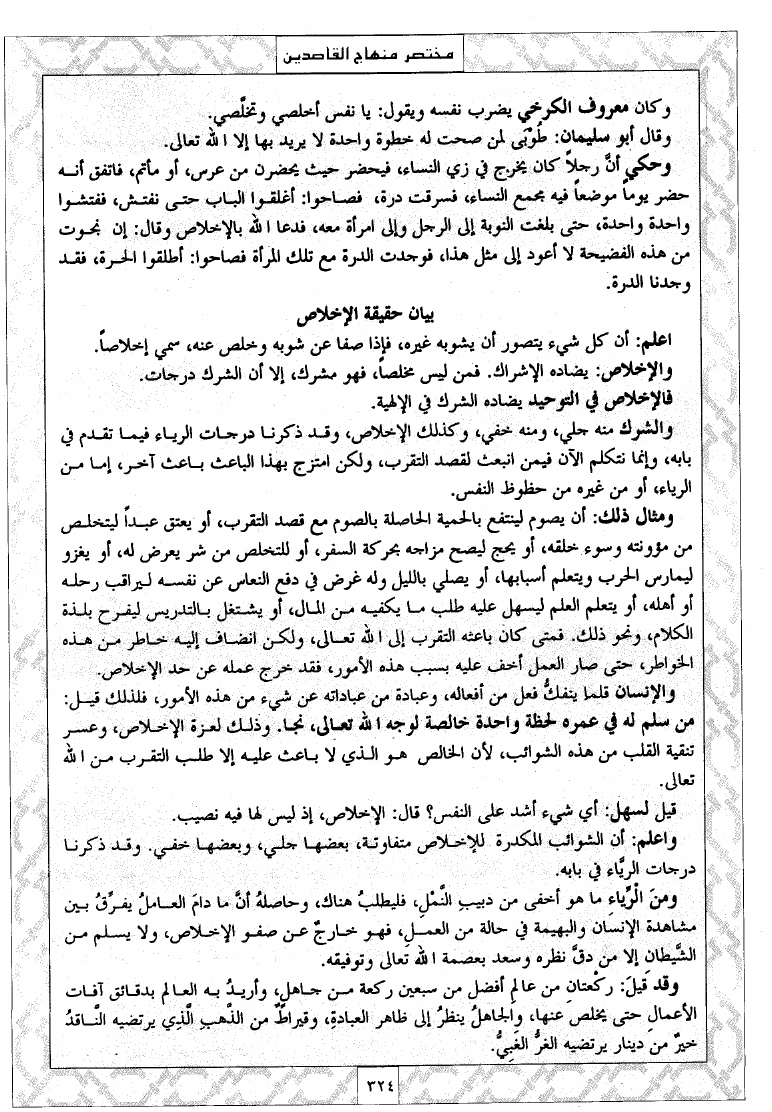 مختصر منهاج القاصدين
وكان معروف الكرخي يضرب نفسه ويقول: يا نفس أخلصي وتخلَّصي.
وقال أبو سليمان: طُوْبَى لمن صحت له خطوة واحدة لا يريد بها إلا الله تعالى.
وحكي أنَّ رجلاً كان يخرج في زي النساء، فيحضر حيث يحضرن من عرس، أو مأتم، فاتفق أنه
حضر يوماً موضعاً فيه مجمع النساء، فسرقت درة، فصاحوا: أغلقوا الباب حتى نفتش، ففتشوا
واحدة واحدة، حتى بلغت النوبة إلى الرجل وإلى امرأة معه، فدعا الله بالإخلاص وقال: إن نجوت
من هذه الفضيحة لا أعود إلى مثل هذا، فوجدت الدرة مع تلك المرأة فصاحوا: أطلقوا الحرة، فقد
وجدنا الدرة.
بيان حقيقة الإخلاص
اعلم: أن كل شيء يتصور أن يشوبه غيره، فإذا صفا عن شوبه وخلص عنه، سمي إخلاصاً.
والإخلاص: يضاده الإشراك. فمن ليس مخلصاً، فهو مشرك، إلا أن الشرك درجات.
فالإخلاص في التوحيد يضاده الشرك في الإلهية.
والشرك منه جلي، ومنه خفي، وكذلك الإخلاص، وقد ذكرنا درجات الرياء فيما تقدم في
بابه، وإنما نتكلم الآن فيمن انبعث لقصد التقرب، ولكن امتزج بهذا الباعث باعث آخر، إما من
الرياء، أو من غيره من حظوظ النفس.
ومثال ذلك: أن يصوم لينتفع بالحمية الحاصلة بالصوم مع قصد التقرب، أو يعتق عبداً ليتخلص
من مؤونته وسوء خلقه، أو يحج ليصح مزاجه بحركة السفر، أو للتخلص من شر يعرض له، أو يغزو
ليمارس الحرب ويتعلم أسبابها، أو يصلي بالليل وله غرض في دفع النعاس عن نفسه ليراقب رحله
أو أهله، أو يتعلم العلم ليسهل عليه طلب ما يكفيه من المال، أو يشتغل بالتدريس ليفرح بلذة
الكلام، ونحو ذلك. فمتى كان باعثه التقرب إلى الله تعالى، ولكن انضاف إليه خاطر من هذه
الخواطر، حتى صار العمل أخف عليه بسبب هذه الأمور، فقد خرج عمله عن حد الإخلاص.
والإنسان قلما ينفكُّ فعل من أفعاله، وعبادة من عباداته عن شيء من هذه الأمور، فلذلك قيل:
من سلم له في عمره لحظة واحدة خالصة لوجه الله تعالى، نجا. وذلك لعزة الإخلاص، وعسر
تنقية القلب من هذه الشوائب، لأن الخالص هو الذي لا باعث عليه إلا طلب التقرب من الله
تعالى.
قيل لسهل: أي شيء أشد على النفس؟ قال: الإخلاص، إذ ليس لها فيه نصيب.
واعلم: أن الشوائب المكدرة للإخلاص متفاوتة، بعضها جلي، وبعضها خفي. وقد ذكرنا
درجات الرِّياء في بابه.
ومنَ الرِّياءِ ما هو أخفى من دبيبِ النَّمْلِ، فليطلبُ هناك، وحاصلهُ أنَّ ما دامَ العاملُ يفرِّقُ بين
مشاهدة الإنسان والبهيمة في حالة من العمل، فهو خارجٌ عن صفو الإخلاص، ولا يسلم من
الشَّيطان إلا من دقَّ نظره وسعد بعصمة الله تعالى وتوفيقه.
وقد قيلَ: ركْعتانِ من عالمٍ أفضل من سبعين ركعة من جاهلٍ، وأريدُ به العالم بدقائق آفات
الأعمالِ حتى يخلص عنها، والجاهلُ ينظرُ إلى ظاهر العبادةِ، وقيراطٌ من الذَّهبِ الَّذي يرتضيه النَّاقدُ
خيرٌ من دينار يرتضيه الغرُّ الغَبيُّ.
٣٢٤